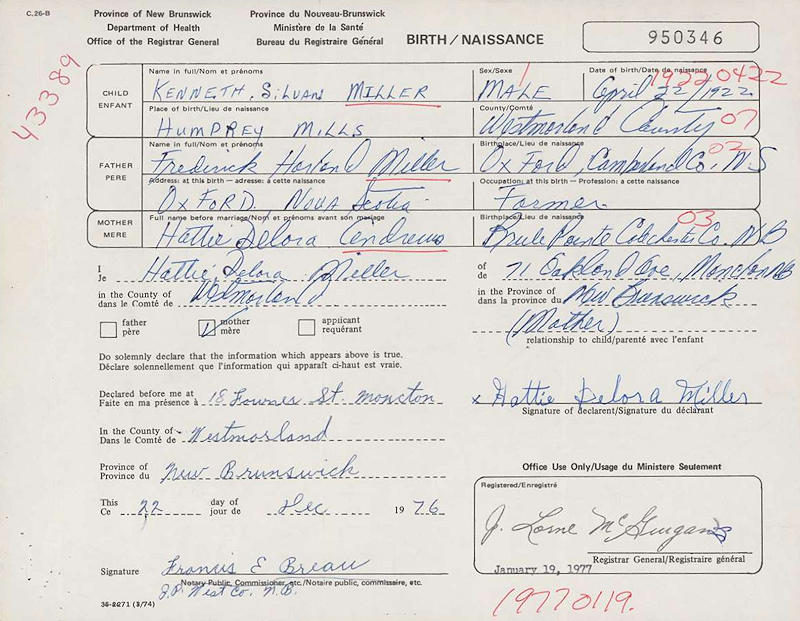 C.26-B
Province of New Brunswick
Department of Health
Office of the Registrar General
Province du Nouveau-Brunswick
Ministère de la Santé
Bureau du Registraire Général
BIRTH/NAISSANCE
950346
43389
CHILD
ENFANT
Name in full/Nom et prénoms
KENNETH SILVAN MILLER
Sex/Sexe
MALE
Date of birth/Date de naissance
19220422
April 22/1922
Place of birth/Lieu de naissance
HUMPREY MILLS
County/Comté
Westmorland County
07
FATHER
PERE
Name in full/Nom et prénoms
Frederick Harland Miller
Birthplace/Lieu de naissance
02
OXFORD, Cumberland Co, N.S
Address: at this birth – adresse: à cette naissance
OXFORD, NOVA Scotia
Occupation: at this birth – Profession: à cette naissance
Farmer
MOTHER
MERE
Full name before marriage/Nom et prénoms avant son mariage
Hattie Delora Andrews
Birthplace/Lieu de naissance
03
Brule Pointe Colchester Co. N.B
I
Je
Hattie Delora Miller
of
de
71 Oakland Ave, Moncton NB
in the County of
dans le Comté de
Westmorland
in the Province of
dans la province du
New Brunswick
father
père
mother
mère
applicant
requérant
(Mother)
relationship to child/parenté avec l'enfant
Do solemnly declare that the information which appears above is true.
Déclare solennellement que l'information qui apparaît ci-haut est vraie.
Declared before me at
Faite en ma présence à
18 Fownes St. Moncton
x Hattie Delora Miller
Signature of declarent/Signature du déclarant
In the County of
Dans le Comté de
Westmorland
Province of
Province du
New Brunswick
This
Ce
22
day of
jour de
Dec
1976
Office Use Only/Usage du Ministere Seulement
Registered/Enregistré
J. Lorne McGuigan
Registrar General/Registraire général
January 19, 1977
Signature
Francis E Breau
Notary Public, Commissioner, etc./Notaire public, commissaire, etc.
J.P. West Co. N.B.
36-2271 (3/74)
19770119.